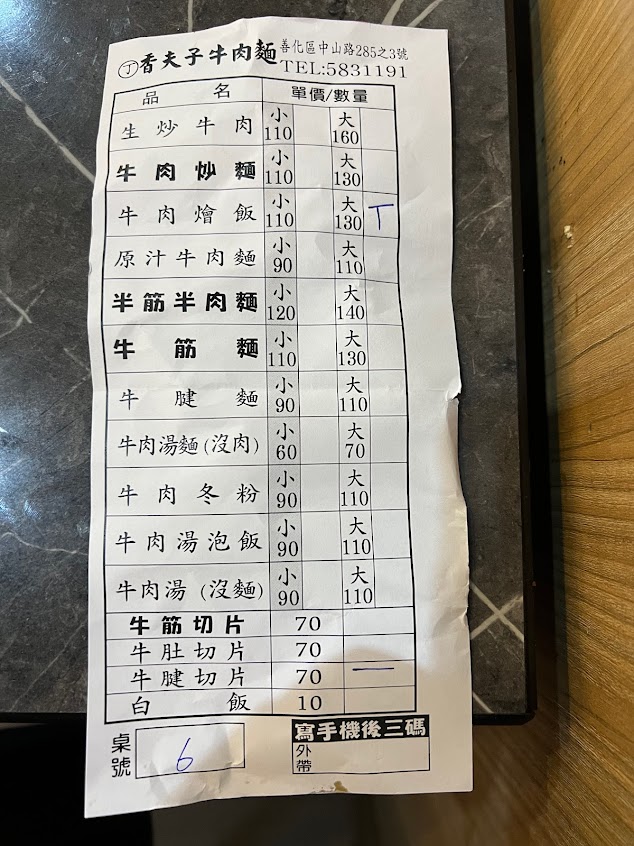 丁香夫子牛肉麵 善化區中山路285之3號
TEL:5831191
品名 單價/數量
生炒牛肉 小110 大160
牛肉炒麵 小110 大130
牛肉燴飯 小110 大130 丅
原汁牛肉麵 小90 大110
半筋半肉麵 小120 大140
牛筋麵 小110 大130
牛腱麵 小90 大110
牛肉湯麵(沒肉) 小60 大70
牛肉冬粉 小90 大110
牛肉湯泡飯 小90 大110
牛肉湯(沒麵) 小90 大110
牛筋切片 70
牛肚切片 70
牛腱切片 70 一
白飯 10
桌號 6
寫手機後三碼
外帶